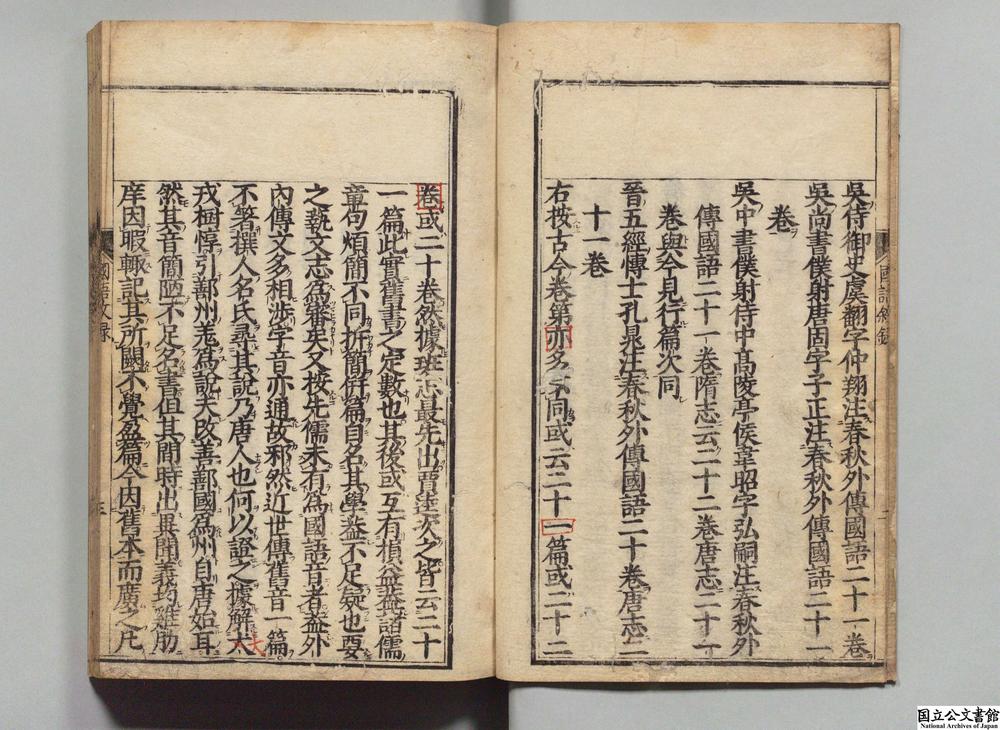 吳侍御史虞翻字仲翔注春秋外傳國語二十一卷
吳尚書僕射唐固字子正注春秋外傳國語二十一
卷
吳中書僕射侍中高陵亭侯韋昭字弘嗣注春秋外
傳國語二十一卷隋志云二十二卷唐志二十一
卷與今見行篇次同
晉五經博士孔晁注春秋外傳國語二十卷唐志二
十一卷
右按古今卷第亦多不同或云二十一篇或二十二
國語敘錄
二
卷或二十卷然據班志最先出賈逵次之皆云二十
一篇此實舊書之定數也其後或互有損益蓋諸儒
章句煩簡不同析簡併篇自名其學蓋不足疑也要
之蓺文志為審矣又按先儒未有為國語音者蓋外
內傳文多相涉字音亦通故邪然近世傳舊音一篇
不箸撰人名氏尋其說乃唐人也何以證之據解犬
犬
戎樹惇引鄯州羌為說夫改善鄯國為州自唐始耳
然其音簡陋不足名書但其間時出異聞義均雞肋
庠因暇輒記其所闕不覺盈篇今因舊本而廣之凡
國語敘錄
三
国立公文書館
National Archives of Japan